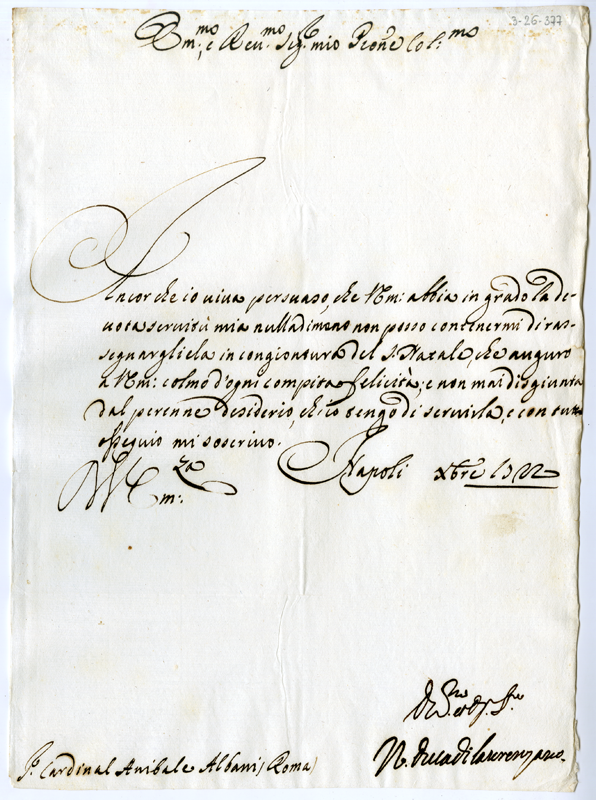 3-26-377
Em.mo, e Reu.mo Sig.r mio P̃rone Col.mo
Ancorche io viva persuaso, che V Em: abbia in grado la de-
uota seruitù mia nulladimeno non posso contenermi di ras-
segnargliela in congiontura del S. Natale, che auguro
a V Em: colmo d'ogni compita felicità; e non mai disgiunta
dal perenne desiderio, ch'io tengo di seruirla, e con tutto
ossequio mi soscriuo.
V Em:za Napoli Xbre 1722
N. Duca di Laurenzano
Sr. Cardinal Anibale Albani (Roma)